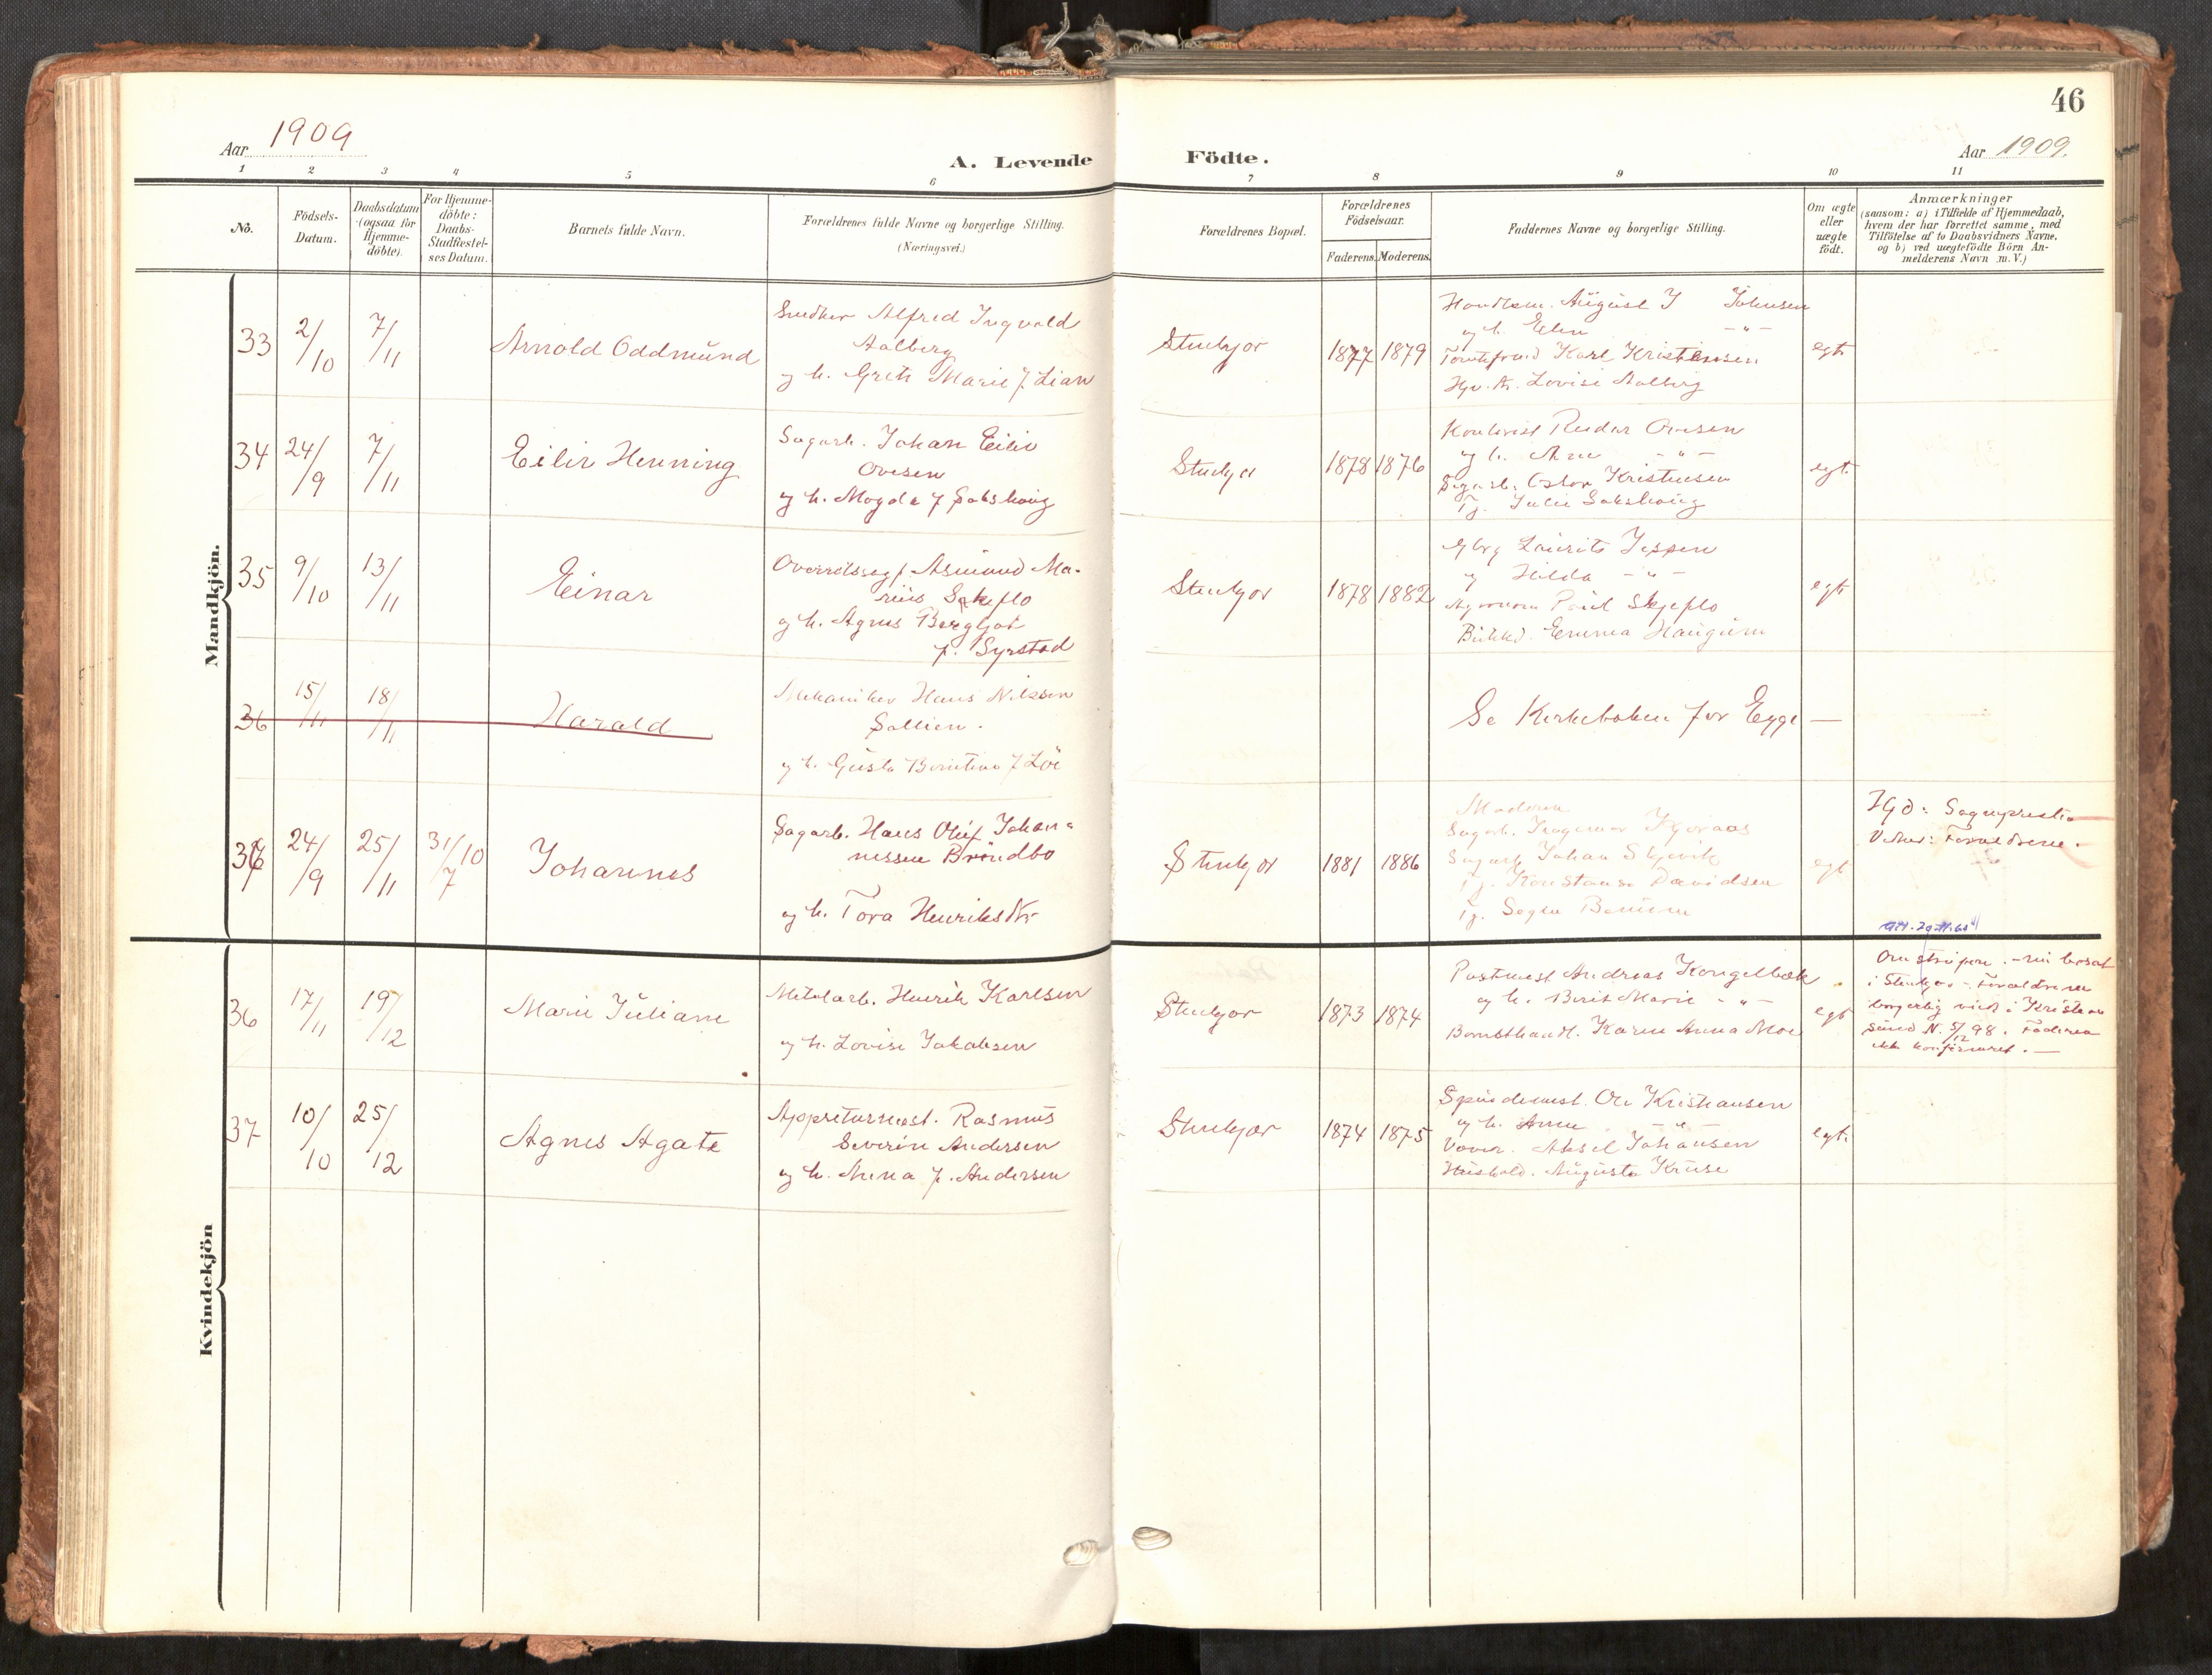 46
Aar 1909
A. Levende Födte.
Aar 1909.
1 2 3 4 5 6 7 8 9 10 11
No.
Födsels-
Datum.
Daabsdatum
(ogsaa for
Hjemme-
döbte).
For Hjemme-
döbte:
Daabs-
Stadfæstel-
ses Datum.
Barnets fulde Navn.
Forældrenes fulde Navne og borgerlige Stilling.
(Næringsvei.)
Forældrenes Bopæl.
Forældrenes
Födselsaar.
Faderens. Moderens.
Faddernes Navne og borgerlige Stilling.
Om ægte
eller
uægte
födt.
Anmærkninger
(saasom: a) i Tilfælde af Hjemmedaab,
hvem der har forrettet samme, med
Tilföielse af to Daabsvidners Navne,
og b) ved uægtefödte Börn An-
melderens Navn m. V.)
Mandkjön.
33
2/10
7/11
Arnold Oddmund
Snedker Alfred Ingvald
Aalberg
og h. Marie f. Lian
Stenkjær
1877 1879
August J Johnsen
og h. Elen -"-
Karl Kristensen
Lovise Aalberg
egt.
34
24/9
7/11
Eiliv Henning
Sagarb. Johan Eiliv
Ovesen
og h. Magda f Sakshaug
Stenkjær
1878 1876
Kontorist Peder Ovesen
og h. Anne -"-
Sagarb. Oskar Kristensen
Tj. Julie Sakshaug
egt.
35
9/10
13/11
Einar
Overretssagf. Asmund Ma-
rius Skjeflo
og h. Agnes Bergljot
f. Syrstad
Stenkjær
1878 1882
Gbrg Laurits Jessen
og Hilda -"-
Agronom Paul Skjeflo
Emma Haugum
egt.
36
15/11
18/11
Harald
Mekaniker Hans Nilssen
Sallien.
og h. Gusta Berntine f Lö
Se Kirkeboken for Egge —
36
24/9
25/11
31/10
7
Johannes
Sagarb. Hans Oluf Johan-
nessen Bröndbo
og h. Tora Henriksdtr
Stenkjær
1881 1886
Moderen
Sagarb. Ingemar
Sagarb. Johan Skjevik
Tj. Konstanse Davidsen
Tj. Signe
egt.
HjD: Sognepresten
Vidner: Forældrene.
Kvindekjön
36
17/11
19/12
Marie Juliane
Metalarb. Henrik Karlsen
og h. Lovise Jakobsen
Stenkjær
1873 1874
Postmest Andreas Kongelbæk
og h. Berit Marie -"-
Karen Anna Moe
egt.
Omstreifere. – nu bosat
i Stenkjær – Forældrene
borgerlig viet i Kristian
sund N. 5/12 98. Faderen
ikke konfirmeret. —
37
10/10
25/12
Agnes Agate
Appreturmest. Rasmus
Severin Andersen
og h. Anna f. Andersen
Stenkjær
1874 1875
Spindemest. Ole Kristiansen
og h. Anne -"-
Væver. Aksel Johansen
Hushold. Augusta Kruse
egt.